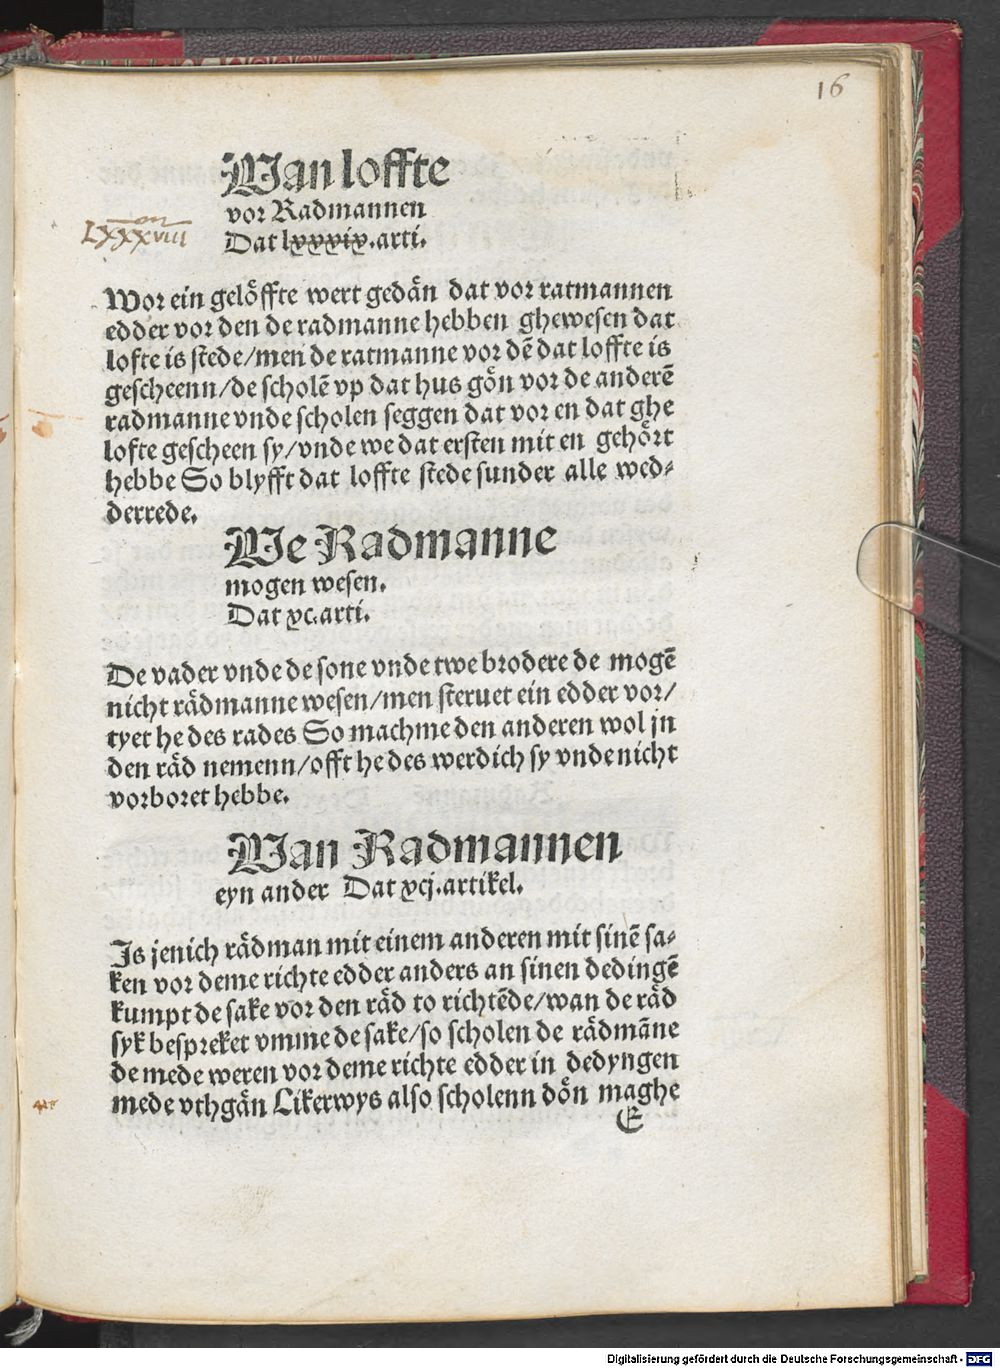 16
Wan loffte
vor Radmannen
LXXXVIII
Dat lxxxix.arti.
Wor ein gelöffte wert gedän dat vor ratmannen
edder vor den de radmanne hebben ghewesen dat
lofte is stede/men de ratmanne vor dē dat loffte is
gescheenn/de scholē vp dat hus gön vor de anderē
radmanne vnde scholen seggen dat vor en dat ghe
lofte gescheen sy/vnde we dat ersten mit en gehört
hebbe So blyfft dat loffte stede sunder alle wed⸗
derrede.
We Radmanne
mogen wesen.
Dat xc.arti.
De vader vnde de sone vnde twe brodere de mogē
nicht rädmanne wesen/men steruet ein edder vor/
tyet he des rades So machme den anderen wol jn
den räd nemenn/offt he des werdich sy vnde nicht
vorboret hebbe.
Wan Radmannen
eyn ander Dat xcj.artikel.
Is jenich rädman mit einem anderen mit sinē sa⸗
ken vor deme richte edder anders an sinen dedingē
kumpt de sake vor den räd to richtēde/wan de räd
syk bespreket vmme de sake/so scholen de rädmāne
de mede weren vor deme richte edder in dedyngen
mede vthgän Likerwys also scholenn dön maghe
E
Digitalisierung gefördert durch die Deutsche Forschungsgemeinschaft - DFG